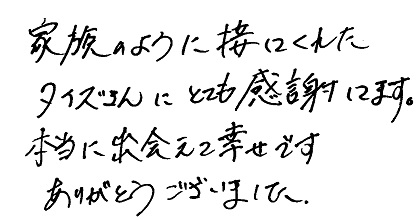 家族のように接してくれた
タイズさんにとても感謝してます。
本当に出会えて幸せです
ありがとうございました。